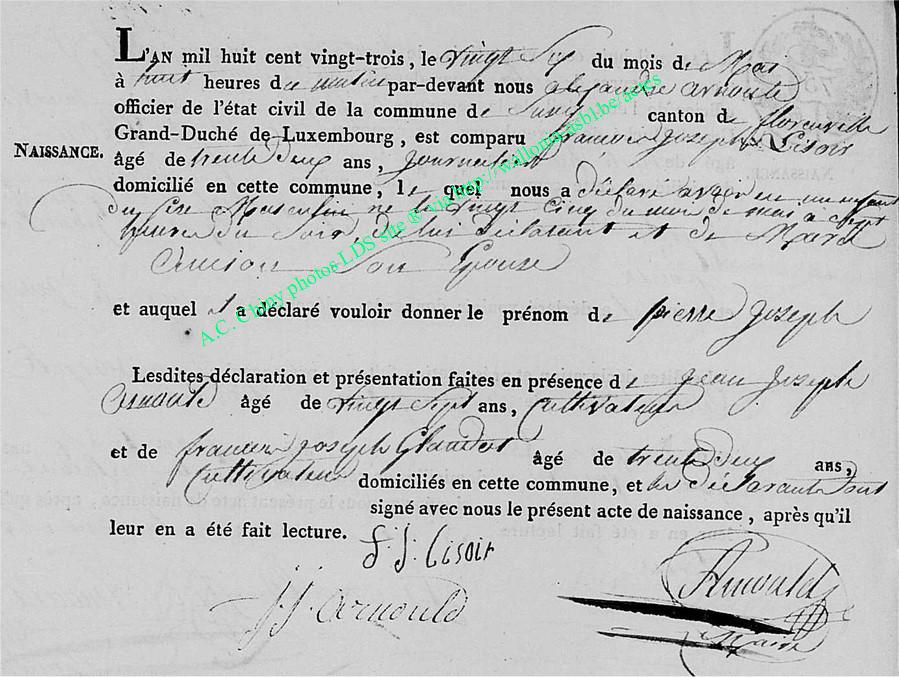 L'AN mil huit cent vingt-trois, le vingt Six du mois de Mai
à huit heures du matin par-devant nous alexandre arnould
officier de l'état civil de la commune de canton de florenville
Grand-Duché de Luxembourg, est comparu francois Joseph Cisoir
NAISSANCE.
âgé de trente deux ans, Journalier
domicilié en cette commune, le quel nous a déclaré avoir eu un enfant
du Sexe Masculin né le vingt Cinq du mois de mai à Sept
heures du Soir, de lui déclarant et de Marie
Son Epouse
et auquel il a déclaré vouloir donner le prénom de pierre Joseph
Lesdites déclaration et présentation faites en présence de jean Joseph
Arnould âgé de vingt Sept ans, Cultivateur
et de francois Joseph Glaudot âgé de trente deux ans,
Cultivateur domiciliés en cette commune, et les déclarants ont
signé avec nous le présent acte de naissance, après qu'il
leur en a été fait lecture.
f. j. Cisoir
j j. arnould
Arnould
Maire
A.C. Chiny photos LDS site ® vighttp://wallonia.asbl.be/actes